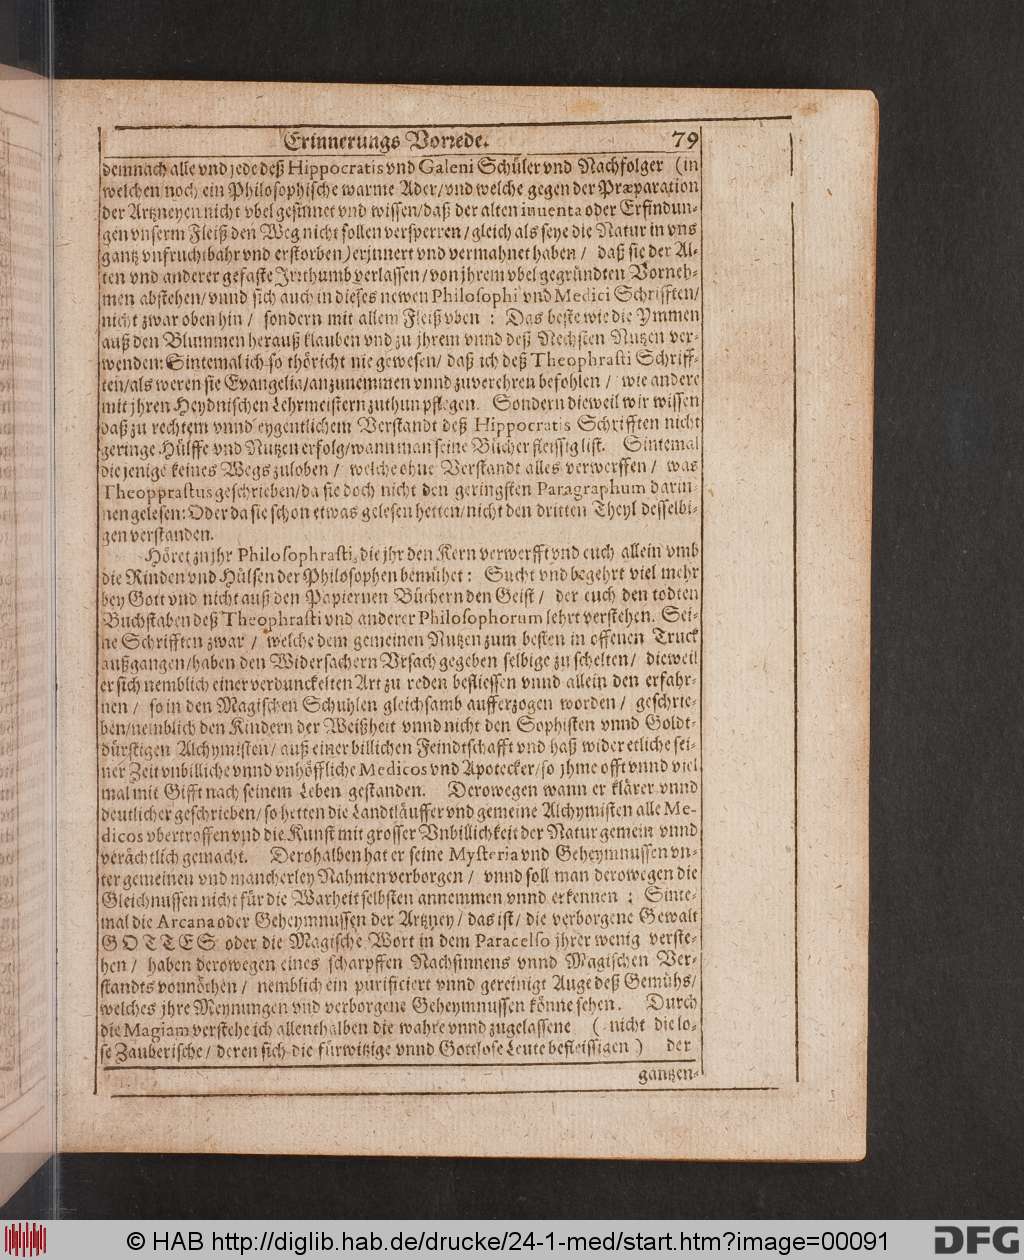 Erinnerungs Vorrede. 79
demnach alle vnd jede deß Hippocratis vnd Galeni Schüler vnd Nachfolger (in
welchen noch ein Philosophische warme Ader/ vnd welche gegen der Præparation
der Artzneyen nicht vbel gesinnet vnd wissen/ daß der alten inuenta oder Erfindun-
gen vnserm Fleiß den Weg nicht sollen versperren/ gleich als seye die Natur in vns
gantz vnfruchtbahr vnd erstorben) erinnert vnd vermahnet haben/ daß sie der Al-
ten vnd anderer gefaste Irrthumb verlassen/ von jhrem vbel gegründten Vorneh-
men abstehen/ vnnd sich auch in dieses newen Philosophi vnd Medici Schrifften/
nicht zwar oben hin/ sondern mit allem Fleiß vben : Das beste wie die Ymmen
auß den Blummen herauß klauben vnd zu jhrem vnnd deß Nechsten Nutzen ver-
wenden: Sintemal ich so thöricht nie gewesen/ daß ich deß Theophrasti Schriff-
ten/ als weren sie Evangelia/ anzunemmen vnnd zuverehren befohlen/ wie andere
mit jhren Heydnischen Lehrmeistern zuthun pflegen. Sondern dieweil wir wissen
daß zu rechtem vnnd eygentlichem Verstandt deß Hippocratis Schrifften nicht
geringe Hülffe vnd Nutzen erfolg/ wann man seine Bücher fleissig list. Sintemal
die jenige keines Wegs zuloben/ welche ohne Verstandt alles verwerffen/ was
Theopprastus geschrieben/ da sie doch nicht den geringsten Paragraphum darin-
nen gelesen: Oder da sie schon etwas gelesen hetten/ nicht den dritten Theyl desselbi-
gen verstanden.
Höret zu jhr Philosophrasti, die jhr den Kern verwerfft vnd euch allein vmb
die Rinden vnd Hülsen der Philosophen bemühet : Sucht vnd begehrt viel mehr
bey Gott vnd nicht auß den Papiernen Büchern den Geist/ der euch den todten
Buchstaben deß Theophrasti vnd anderer Philosophorum lehrt verstehen. Sei-
ne Schrifften zwar/ welche dem gemeinen Nutzen zum besten in offenen Truck
außgangen/ haben den Widersachern Vrsach gegeben selbige zu schelten/ dieweil
er sich nemblich einer verdunckelten Art zu reden beflissen vnnd allein den erfahr-
nen/ so in den Magischen Schuhlen gleichsamb aufferzogen worden/ geschrie-
ben/ nemblich den Kindern der Weißheit vnnd nicht den Sophisten vnnd Goldt-
dürstigen Alchymisten/ auß einer billichen Feindtschafft vnd haß wider etliche sei-
ner Zeit vnbilliche vnnd vnhöffliche Medicos vnd Apotecker/ so jhme offt vnnd viel
mal mit Gifft nach seinem Leben gestanden. Derowegen wann er klärer vnnd
deutlicher geschrieben/ so hetten die Landtläuffer vnd gemeine Alchymisten alle Me-
dicos vbertroffen vnd die Kunst mit grosser Vnbillichkeit der Natur gemein vnnd
verächtlich gemacht. Derohalben hat er seine Mysteria vnd Geheymnussen vn-
ter gemeinen vnd mancherley Nahmen verborgen/ vnnd soll man derowegen die
Gleichnussen nicht für die Warheit selbsten annemmen vnnd erkennen : Sinte-
mal die Arcana oder Geheymnussen der Artzney/ das ist/ die verborgene Gewalt
GOTTES oder die Magische Wort in dem Paracelso jhrer wenig verste-
hen/ haben derowegen eines scharpffen Nachsinnens vnnd Magischen Ver-
standts vonnöthen/ nemblich ein purificiert vnnd gereinigt Auge deß Gemühs/
welches jhre Meynungen vnd verborgene Geheymnussen könne sehen. Durch
die Magiam verstehe ich allenthalben die wahre vnnd zugelassene (nicht die lo-
se Zauberische/ deren sich die fürwitzige vnnd Gottlose Leute befleissigen) der
gantzen-
© HAB http://diglib.hab.de/drucke/24-1-med/start.htm?image=00091
DFG